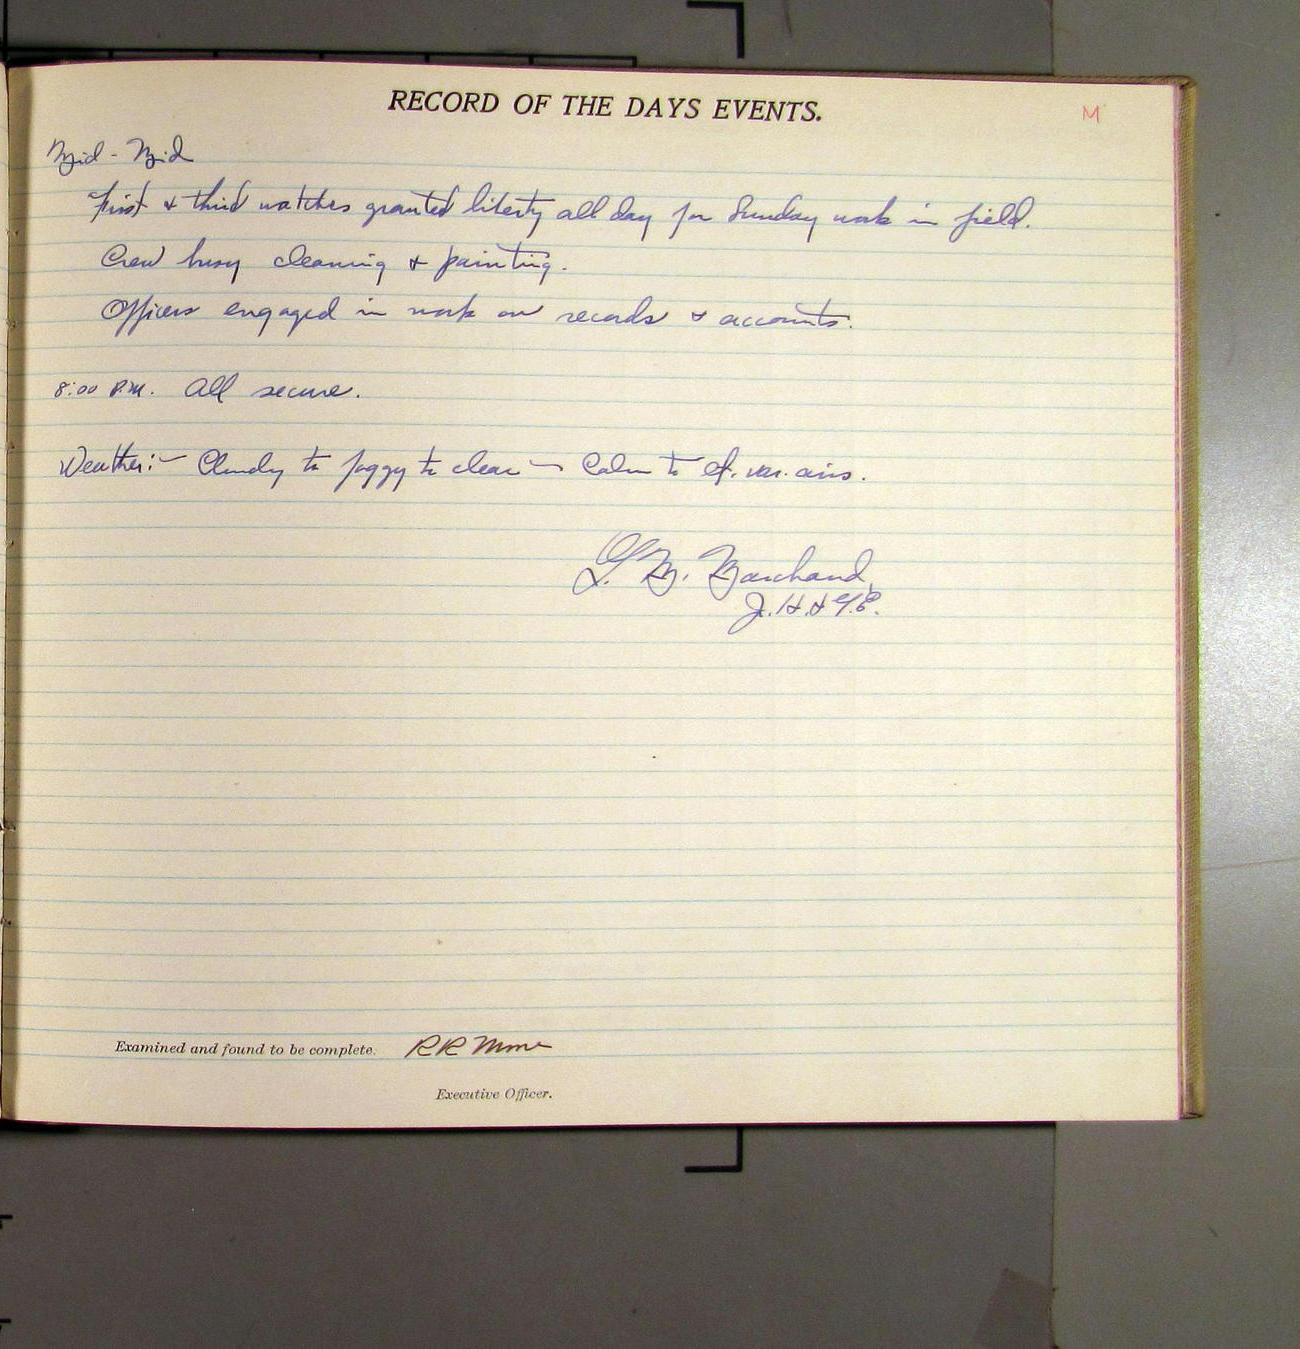 RECORD OF THE DAYS EVENTS.
M
Mid - Mid
First & third watches granted liberty all day for Sunday work in field.
Crew busy cleaning & painting.
Officers engaged in work on records & accounts.
8:00 P.M. All secure.
Weather:- Cloudy to foggy to clear - Calm to lt. var. airs.
L. M. Marchand,
J. H. & G. E.
Examined and found to be complete. RR Moore
Executive Officer.